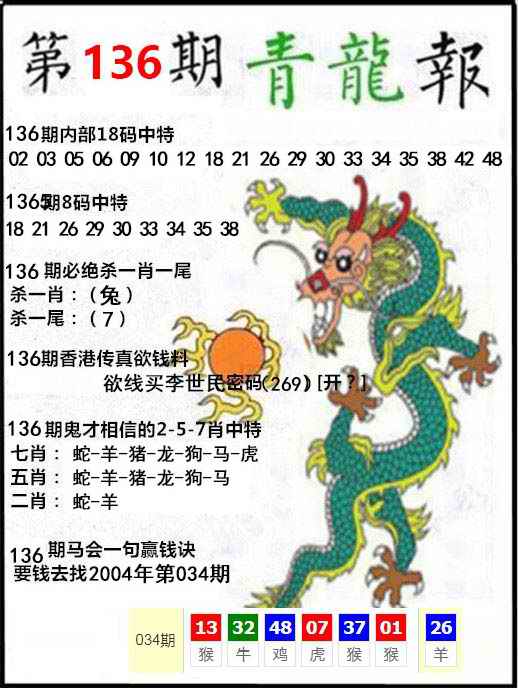 第136期青龍報
136期内部18码中特
02 03 05 06 09 10 12 18 21 26 29 30 33 34 35 38 42 48
136期8码中特
18 21 26 29 30 33 34 35 38
136 期必绝杀一肖一尾
杀一肖：（兔）
杀一尾：（7）
136期香港传真欲钱料
欲线买李世民密码(269) [开？]
136 期鬼才相信的2-5-7肖中特
七肖： 蛇-羊-猪-龙-狗-马-虎
五肖： 蛇-羊-猪-龙-狗-马
二肖： 蛇-羊
136 期马会一句赢钱诀
要钱去找2004年第034期
034期 13 32 48 07 37 01 26
猴 牛 鸡 虎 猴 猴 羊